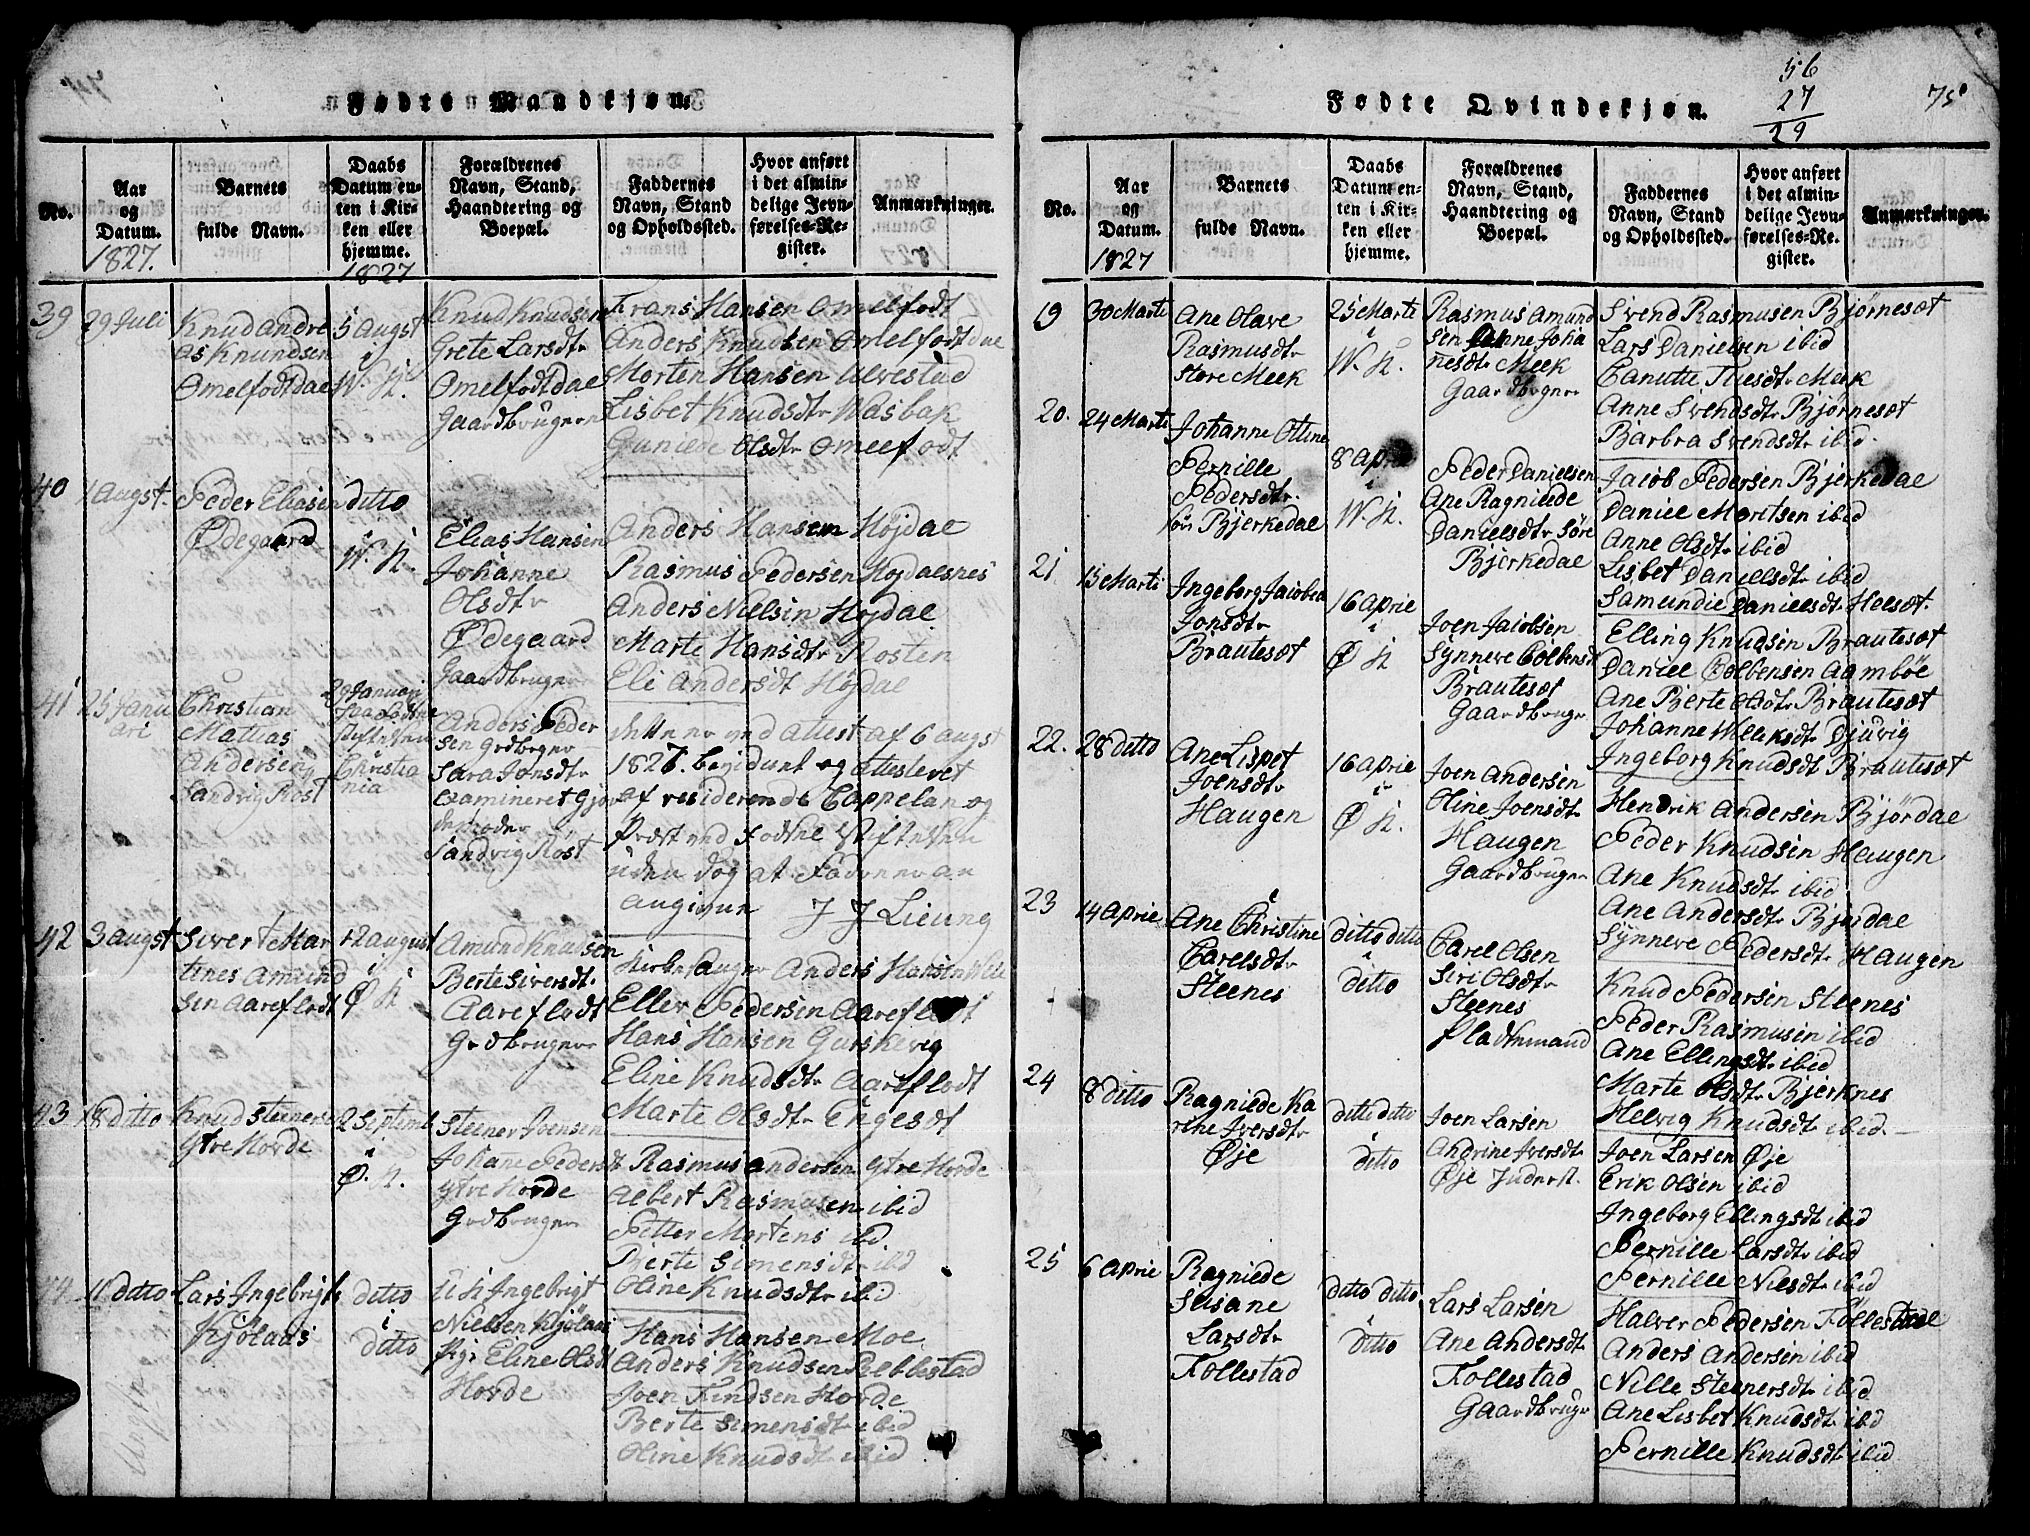 Fødte Mandkjøn.
No.
Aar
og
Datum.
1827.
Barnets
fulde Navn.
Daabs
Datum en-
ten i Kir-
ken eller
hjemme.
1827
Forældrenes
Navn, Stand,
Haandtering og
Boepæl.
Faddernes
Navn, Stand
og Opholdssted.
Hvor anført
i det almin-
delige Jevn-
førelses-Re-
gister.
Anmærkninger.
39
29 Juli
Knud Andre
as Knundsen
Omelfodtdal
5 Augst
i
W. K.
Knud Knudsen
Grete Larsdtr
Omelfodtdal
Gaardbrugern
Frans Hansen Omelfodt
Anders Knudsen Omelfodtdal
Morten Hansen Ulvestad
Lisbet Knudsdtr Nasbak
Gunilde Olsdtr Omelfodt
40
1 Augst.
Peder Eliasen
Ødegaard
ditto
i
W. K.
Elias Hansen
Johanne
Olsdtr
Ødegaard
Gaardbruger
Anders Hansen Højdal
Rasmus Pedersen Højdalsnes
Anders Nielsin Højdal
Marte Hansdtr Rosten
Eli Andersdt Højdal
41
25 Janu
ari
Christian
Matias
Andersen
Sandvig Røst
29 Januari
Christia
nia
Anders Peder
sen Grdbrger
Sara Jonsdtr
examineret Gjor
demoder
Sandvig Røst
dette er ved Attest af 6 Augst
1827. bevidunt og attesteret
af residerende Cappelan og
Præst ved Fødsel Stiftelsen
uden dog at Fadrene an
angivne J J Lieung
42
3 Augst
Sivert Mar
tines Amund
sin Aareflodt
12 August
i
Ø K
Amund Knudsen
Berte Siversdtr
Aareflodt
Grdbruger
Kirkesanger Anders Hansen
Eller Pedersin Aareflodt
Hans Hansen Gurskevig
Eline Knudsdtr Aareflodt
Marte Olsdtr Engesdt
43
18 ditto
Knud Steiners
Ytre Horde
2 Septemb
i
Ø. K.
Steener Joensen
Johane Peders
Ytre Horde
Grdbruger
Rasmus Andersen Ytre Horde
Albert Rasmusen ibid
Petter Mortens ibd
Berte Simensdtr ibd
Oline Knudsdtr ibid
44
11 ditto
Lars Ingebrigts
Kjølaas
ditto
i
ditto
Ingebrigt
Nielsen Kjølaas
Pgr Eline Olsdt
Horde
Hans Hansen Moe
Anders Knudsen Rebbestad
Joen Findsen Horde
Berte Simensdtr ibid
Oline Knudsdt ibid
Fødte Qvindekjøn.
56
27
29
75
No.
Aar
og
Datum.
1827
Barnets
fulde Navn.
Daabs
Datum en-
ten i Kir-
ken eller
hjemme.
Forældrenes
Navn, Stand,
Haandtering og
Boepæl.
Faddernes
Navn, Stand
og Opholdssted.
Hvor anført
i det almin-
delige Jevn-
førelses-Re-
gister.
Anmærkninger.
19
30 Marti
Ane Olave
Rasmusdtr
Støre Meek
25 Marti
i
W. K.
Rasmus Amund
sen Anne Joha
nesdtr Meek
Gaardbrger
Svend Rasmusen Bjørnesæt
Lars Danielsen ibid
Canutte Tuesdtr Meek
Anne Svendsdtr Bjørnesæt
Barbra Svendsdtr ibid
20.
24 Marti
Johanne Oline
Pernille
Pedersdtr
Sør Bjerkedal
8 April
i
W. K.
Peder Danielsen
Ane Ragnilede
Danielsdtr Søre
Bjerkedal
Jacob Pedersen Bjerkedal
Daniel Moritsen ibid
Anne Olsdtr ibid
Lisbet Danielsdtr ibid
Samundie Danielsdtr Helset.
21
15 Marti
Ingeborg Jacobea
Jonsdtr
Brautesæt
16 Aprie
i
Ø K
Joen Jacobsen
Synneve Colbensdt
Brautesæt
Gaardbruger
Elling Knudsin Brautesæt
Daniel Colbensen Aambøe
Ane Berte Olsdtr Brautesæt
Johanne Welleksdtr Djuvig
Ingeborg Knudsdtr Brautesæt
22.
28 ditto
Ane Lispet
Joensdtr
Haugen
16 Aprie
i
Ø K.
Joen Andersen
Oline Joensdtr
Haugen
Gaardbruger
Hendrik Andersen Bjørdal
Peder Knudsin Haugen
Ane Knudsdtr ibid
Ane Andersdtr Bjørdal
Synneve Pedersdtr Haugen
23
14 Aprie
Ane Christine
Carelsdtr
Steenes
ditto ditto
i
ditto
Carel Olsen
Siri Olsdtr
Steenes
Pladsemand
Knud Pedersen Steenes
Peder Rasmusin ibid
Ane Ellingsdtr ibid
Marte Olsdtr Bjerknes
Helvig Knudsdtr ibid
24
8 ditto
Ragnilde Ka
rene Iversdtr
Øje
ditto ditto
i
ditto
Joen Larsen
Andrine Iversdtr
Øje Inderst.
Joen Larsen Øje
Erik Olsen ibid
Ingeborg Ellingsdtr ibid
Pernille Larsdtr ibid
Pernille Nilsdtr ibid
25
6 Aprie
Ragnilde
Susane
Larsdtr
Follestad
ditto ditto
i
ditto
Lars Larsen
Ane Andersdtr
Follestad
Gaardbrugr
Halver Pedersen Follestad
Anders Andersen ibid
Nille Steenersdtr ibid
Ane Lisbet Knudsdtr ibid
Pernille Knudsdtr ibid